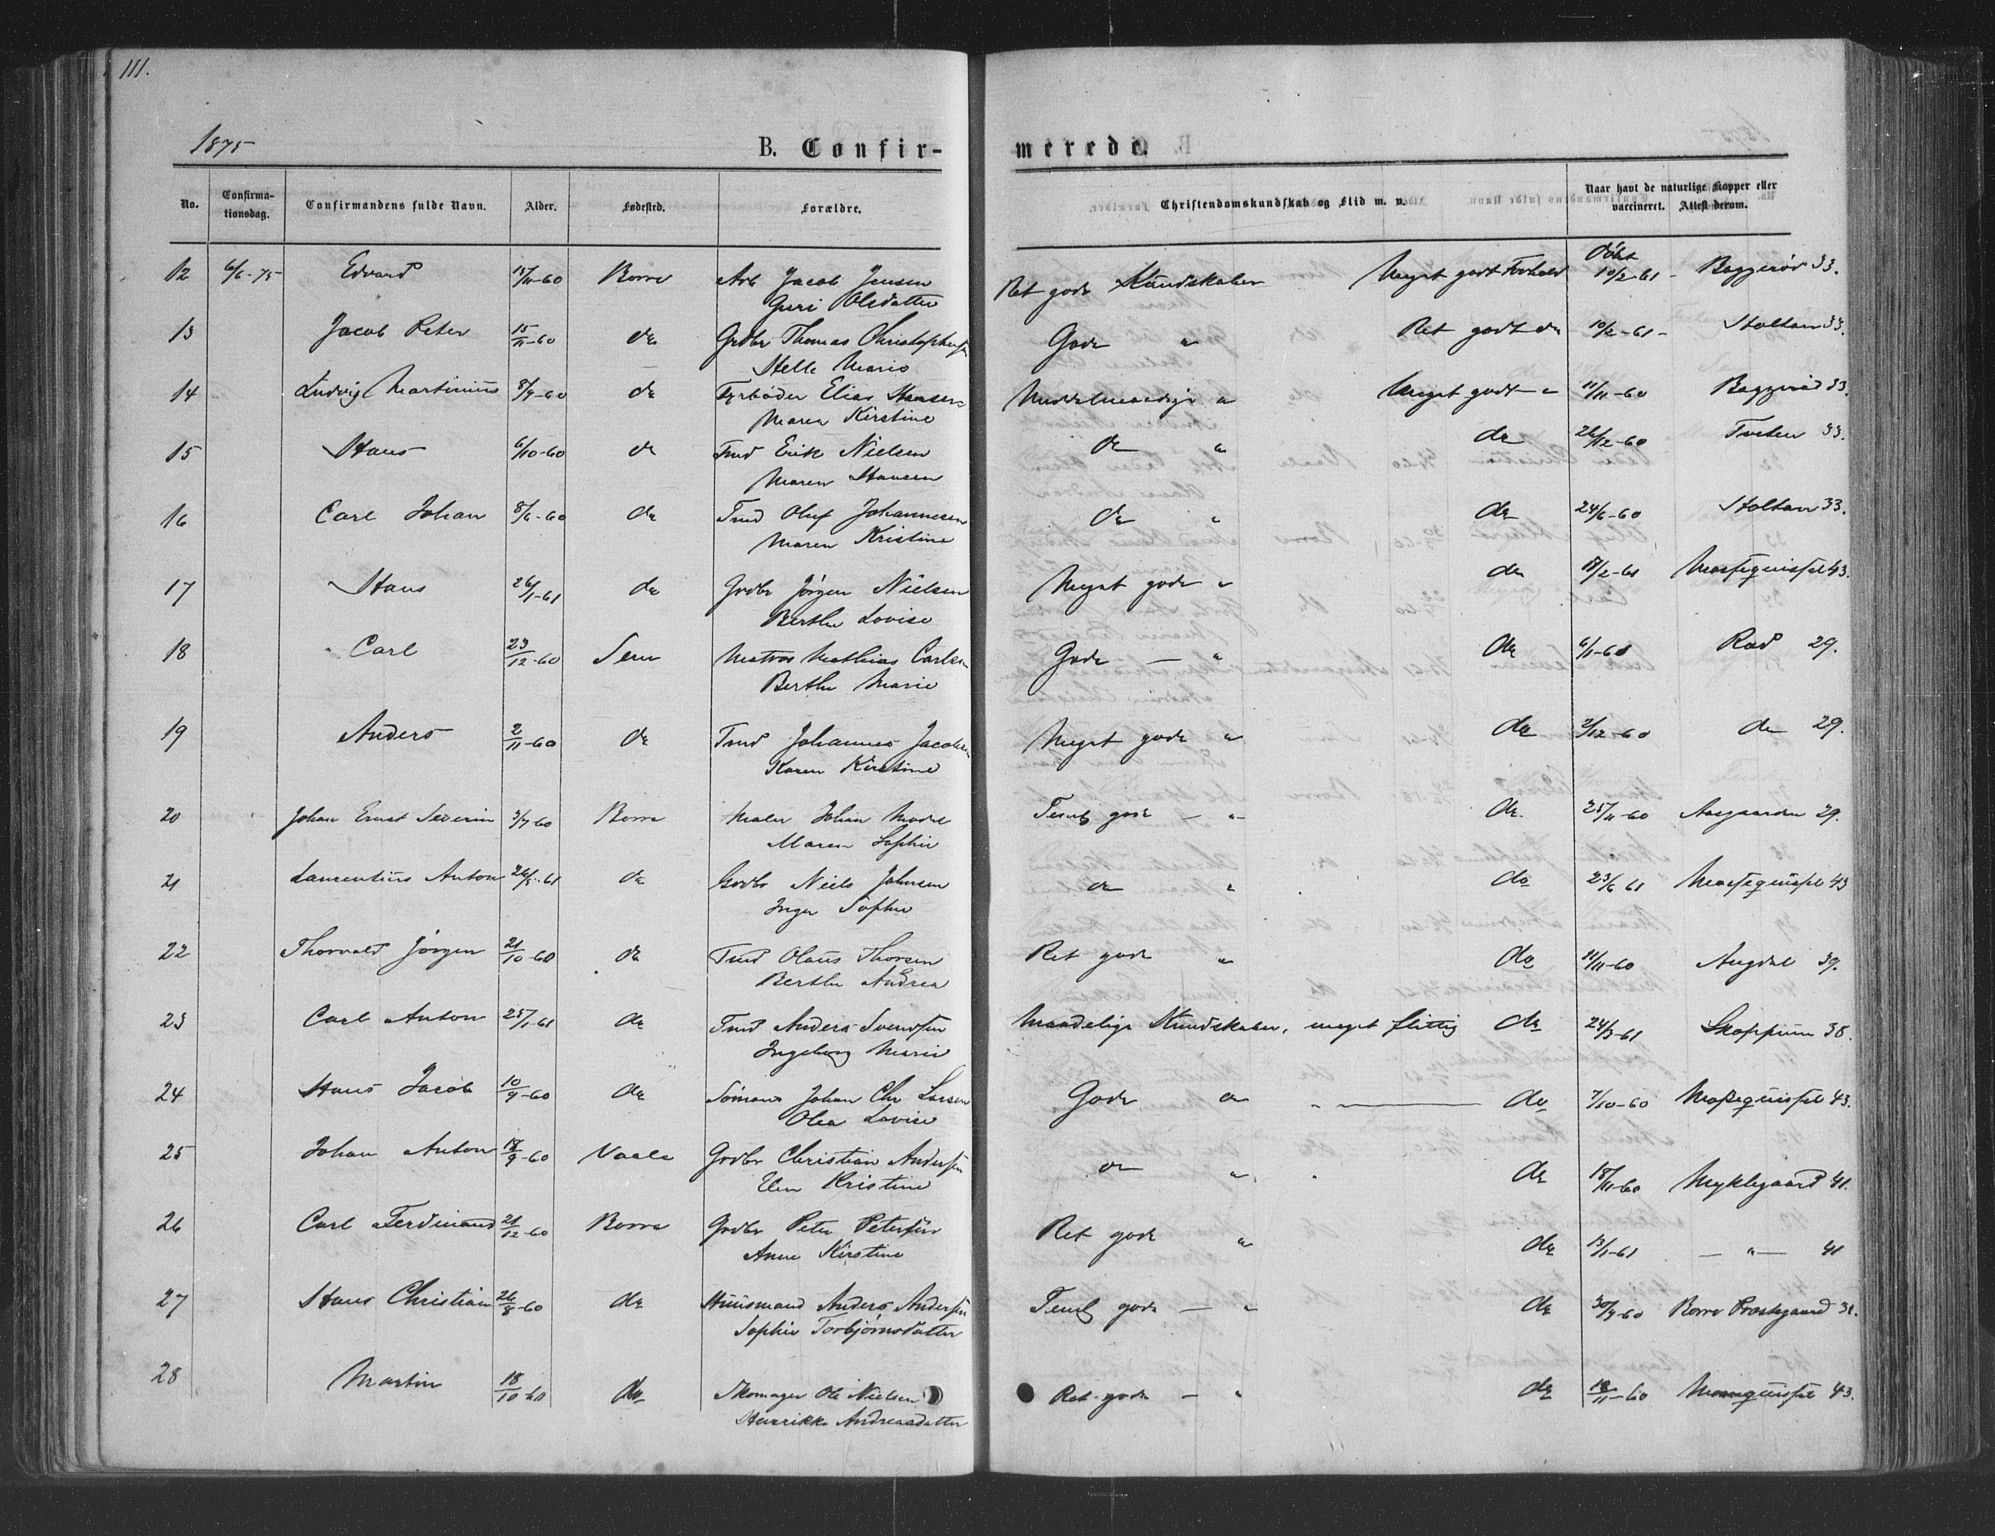 111.
1875
B. Confir-
merede.
No. Confirma-tionsdag. Confirmandens fulde Navn. Alder. Fødested. Forældre. Christendomskundskab og Flid m. v. Naar havt de naturlige Kopper eller vaccineret. Attest derom.
12 6/6-75 Edvard 15/11-60 Borre Arb Jacob Jensen Ret gode Kundskaber Meget godt Forhold Døbt 10/2-61- Baggerød 33.
Guri Olsdatter
13 Jacob Peter 15/11-60 do Grdbr Thomas Christophersen Gode " Ret godt do 10/2-61- Holtan 33.
Helle Marie
14 Ludvig Martinius 8/9-60 do Fyrbøder Elias Hansen Middelmaadige " Meget godt " 11/11-60 Baggerød 33
Maren Kirstine
15 Hans 6/10-60 do Tmd Erik Nielsen do " do 26/12-60 Tveten 33.
Maren Hansen
16 Carl Johan 8/6-60 do Tmd Oluf Johannesen do " do 24/6-60 Holtan 33.
Maren Kristine
17 Hans 26/1-61 do Grdbr Jørgen Nielsen Meget gode " do 18/2-61 43.
Berthe Lovise
18 Carl 23/12-60 Sem Matros Mathias Carlsen Gode — " do 6/1-60 Rød 29.
Berthe Marie
19 Anders 2/11-60 do Tmd Johannes Jacobsen Meget gode " do 2/12-60 do 29.
Karen Kirstine
20 Johan Ernst Severin 3/7-60 Borre Maler Johan Maren Sophie Temlg gode — " do. 25/11-60 Aasgaarden 29.
21 Laurentius Anton 26/5-61 do Grdbr Niels Johnsen do " do 23/6 61 43
Inger Sophie
22 Thorvald Jørgen 21/10-60 do Tmd Olaus Thorsen Ret gode " do 11/11-60 Augdal 39.
Berthe Andrea
23 Carl Anton 25/1-61 do Tmd Anders Svendsen Maadelige Kundskaber, meget flittig do 24/3-61 Skoppum 38.
Ingeborg Marie
24 Hans Jacob 10/9-60 do Sømand Johan Chr Larsen Gode " " — do 7/10-60 43.
Olea Lovise
25 Johan Anton 18/9-60 Vaale Grdbr Christian Andersen do " do 18/11-60 Myklegaard 41.
Elen Kristine
26 Carl Ferdinand 21/12-60 Borre Grdbr Peter Petersen Ret gode " do 13/1-61 — " — 41
Anne Kirstine
27 Hans Christian 26/8-60 do Huusmand Anders Andersen Temlg gode — " do 30/9-60 Borre Præstegaard 31.
Sophie Torbjørnsdatter
28 Martin 18/10-60 do Skomager Ole Nielsen Ret gode — " do 18/11-60 43.
Henrikke Andreasdatter